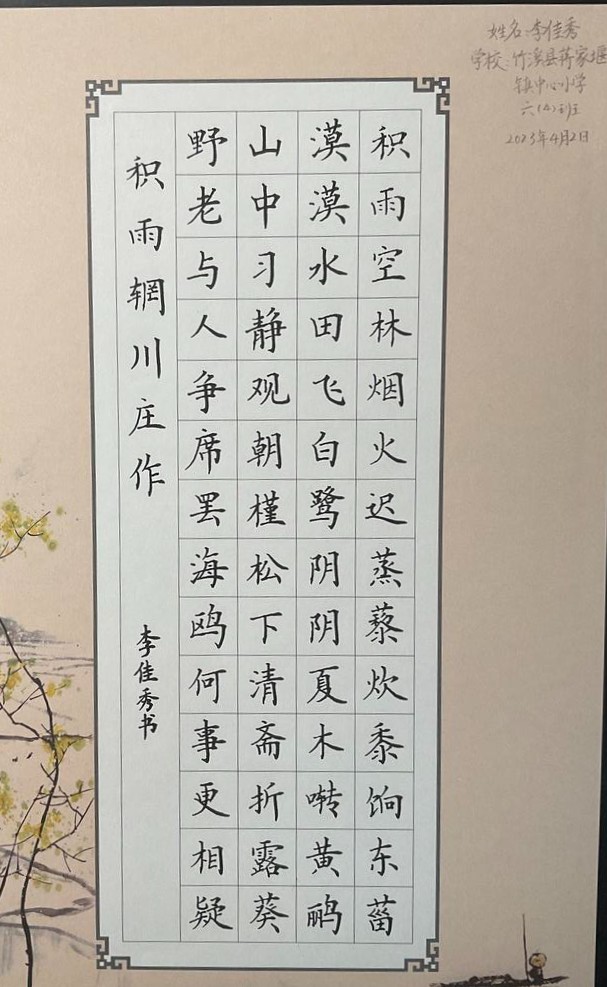 姓名:李佳秀
学校:竹溪县蒋家堰
镇中心小学
六(4)班
2023年4月2日
积雨空林烟火迟蒸藜炊黍饷东菑
漠漠水田飞白鹭阴阴夏木啭黄鹂
山中习静观朝槿松下清斋折露葵
野老与人争席罢海鸥何事更相疑
积雨辋川庄作
李佳秀书